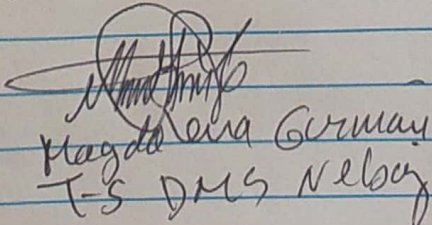 Magdalena Guzman
T-S DMS Nebaj